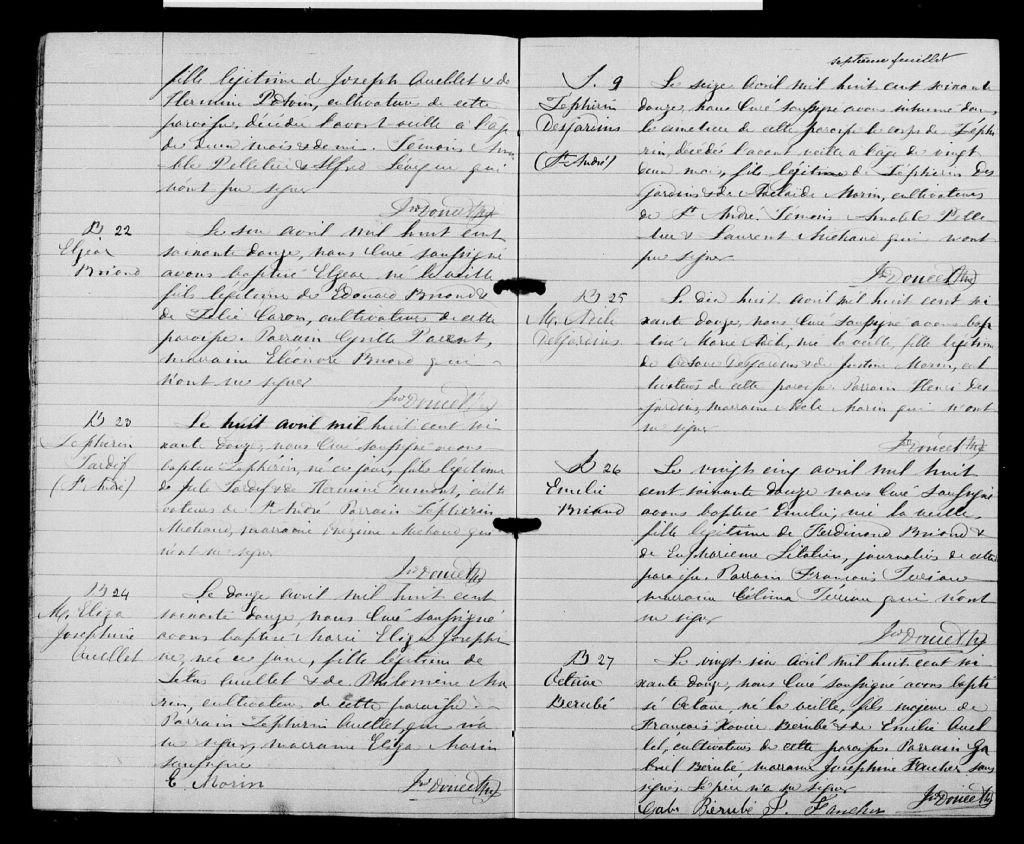 fille légitime de Joseph Ouellet & de
Hermine Potvin, cultivateurs de cette
paroisse, décédée l'avant-veille à l'âge
de deux mois & demi. Témoins Ama
ble Pelletier & Alfred Lévêque qui
n'ont pu signer
Jos Doucet Ptre
B 22
Elzéar
Briand
Le six avril mil huit cent
soixante douze, nous Curé soussigné
avons baptisé Elzéar, né la veille
fils légitime de Edouard Briand &
de Célie Caron, cultivateurs de cette
paroisse. Parrain Cyrille Parent,
marraine Eléonore Briand qui
n'ont su signer
Jos Doucet Ptre
B 23
Zéphirin
Tardif
(St André)
Le huit avril mil huit cent soi
xante douze, nous Curé soussigné avons
baptisé Zéphirin, né ce jour, fils légitime
de Jule Tardif & de Hermine Dumont, cult
ivateurs de St André Parrain Zéphirin
Michaud, marraine Michaud qui
n'ont su signer
Jos Doucet Ptre
B 24
M. Eliza
Josephine
Ouellet
Le douze avril mil huit cent
soixante douze nous Curé soussigné
avons baptisé Marie Eliza Josephi
ne, née ce jour, fille légitime de
Ouellet & de Philomène Mo
rin, cultivateurs de cette paroisse.
Parrain Zéphirin Ouellet, qui n'a
su signer, marraine Eliza Morin
soussignée
E Morin
Jos Doucet Ptre
septième feuillet
S. 9
Zéphirin
Desjardins
(St André)
Le seize avril mil huit cent soixante
douze, nous Curé soussigné avons inhumé dans
le cimetière de cette paroisse le corps de Zéph
irin, décédé l'avant veille à l'âge de vingt
deux mois, fils légitime de Zéphirin Des
jardins & de Adelaïde Morin, cultivateurs
de St André Témoins Amable Pelle
tier & Laurent Michaud qui n'ont
pu signer
Jos Doucet Ptre
B 25
M. Adèle
Desjardins
Le dix huit avril mil huit cent soi
xante douze, nous Curé soussigné avons bap
tisé Marie Adèle, née la veille, fille légitime
de Octave Desjardins & de Justine Morin, cul
tivateurs de cette paroisse. Parrain Henri Des
jardins, marraine Adèle Morin qui n'ont
su signer
Jos Doucet Ptre
B 26
Emilie
Briand
Le vingt cinq avril mil huit
cent soixante douze nous Curé soussigné
avons baptisé Emilie, née la veille
fille légitime de Ferdinand Briand &
de Euphrosine, journalier de cette
paroisse. Parrain François
marraine Célina qui n'ont
su signer
Jos Doucet Ptre
B 27
Octave
Bérubé
Le vingt six avril mil huit cent soi
xante douze, nous Curé soussigné avons bapti
sé Octave, né la veille, fils mineur de
François Xavier Bérubé & de Emilie Ouel
let, cultivateurs de cette paroisse. Parrain Ga
briel Bérubé marraine Josephine Faucher sous
signés. Le père n'a su signer
Gabr Bérubé J. Faucher
Jos Doucet Ptre